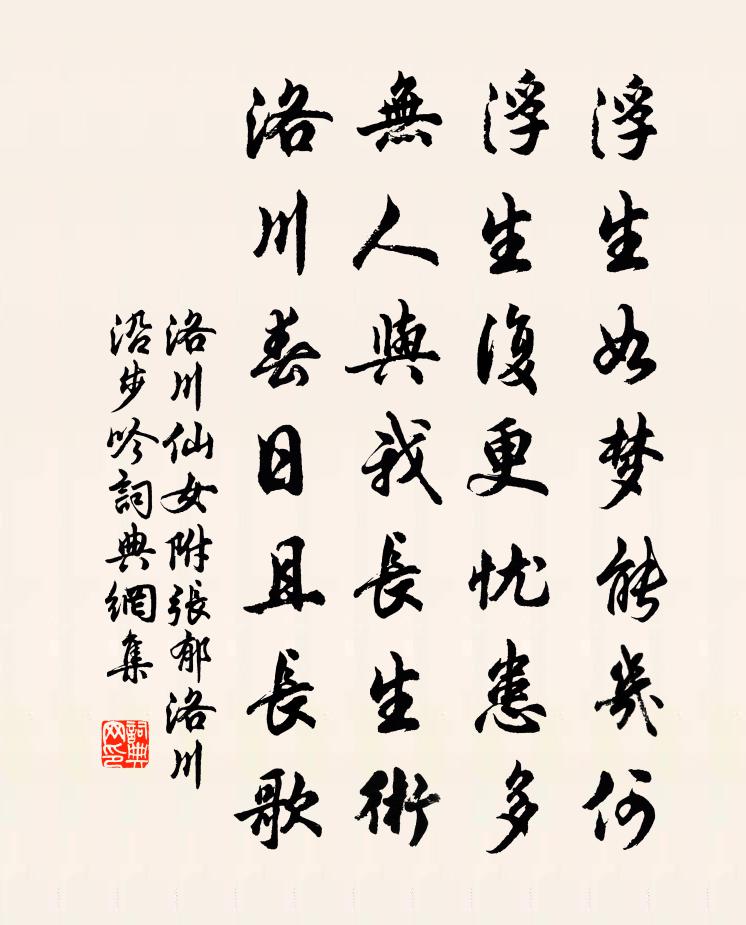 浮生如梦能幾何
浮生復更忧患多
無人與我長生術
洛川春日且長歌
洛川仙女附張郁洛川
沿步吟詞典網集
詞典网印